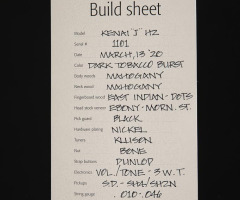 Build sheet
Model KENAI "J" HZ
Serial # 1101
Date MARCH, 13 '20
Color DARK TOBACCO BURST
Body woods MAHOGANY
Neck wood MAHOGANY
Fingerboard wood EAST INDIAN - DOTS
Head stock veneer EBONY - MORN. ST.
Pick guard BLACK
Hardware plating NICKEL
Tuners KLUSON
Nut BONE
Strap buttons DUNLOP
Electronics VOL./TONE - 3 W.T.
Pickups S.D. - SH4/SH2N
String gauge .010-.046